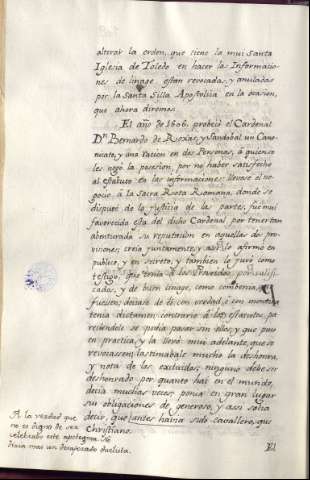 alterar la orden, que tiene la mui Santa
Iglesia de Toledo en hacer las Informacio
nes de linage estan revocadas, y anuladas
por la Santa Silla Apostolica en la ocasion,
que ahora diremos.
El año de 1606. probeió el Cardenal
Dn. Bernardo de Roxas, y Sandobal un Cano-
nicato, y una racion en dos Personas, á quienes
les negó la posesion por no haber satisfecho
al estatuto en las informaciones: llevose el ne-
gocio á la Sacra Rota Romana, donde se
disputó de la justicia de las partes, fue mui
favorecida esta del dicho Cardenal por tener tan
abenturada su reputacion en aquellas dos pro-
visiones; creia juntamente, y asi lo afirmó en
publico, y en secreto, y tambien lo juró como
testigo, que tenia á los Proveidos por calif
cados, y de buen linage, como combenia
fuesen; decíase de el con verdad, ó con
tenia dictamen contrario á los estatutos, pa
reciendole se podia pasar sin ellos, y que puso
en practica, y la llevó mui adelante, que se
revocasen; lastimabale mucho la deshonra,
y nota de los excluidos; ninguno debe ser
deshonrado por quanto hai en el mundo,
decia muchas veces, ponia en gran lugar
sus obligaciones de generoso, y asi solia
decir, que antes havia sido cavallero, que
Christiano.
A la verdad que
no es digno de ser
celebrado este apotegma. No
diria mas un desaforado duelista.
El